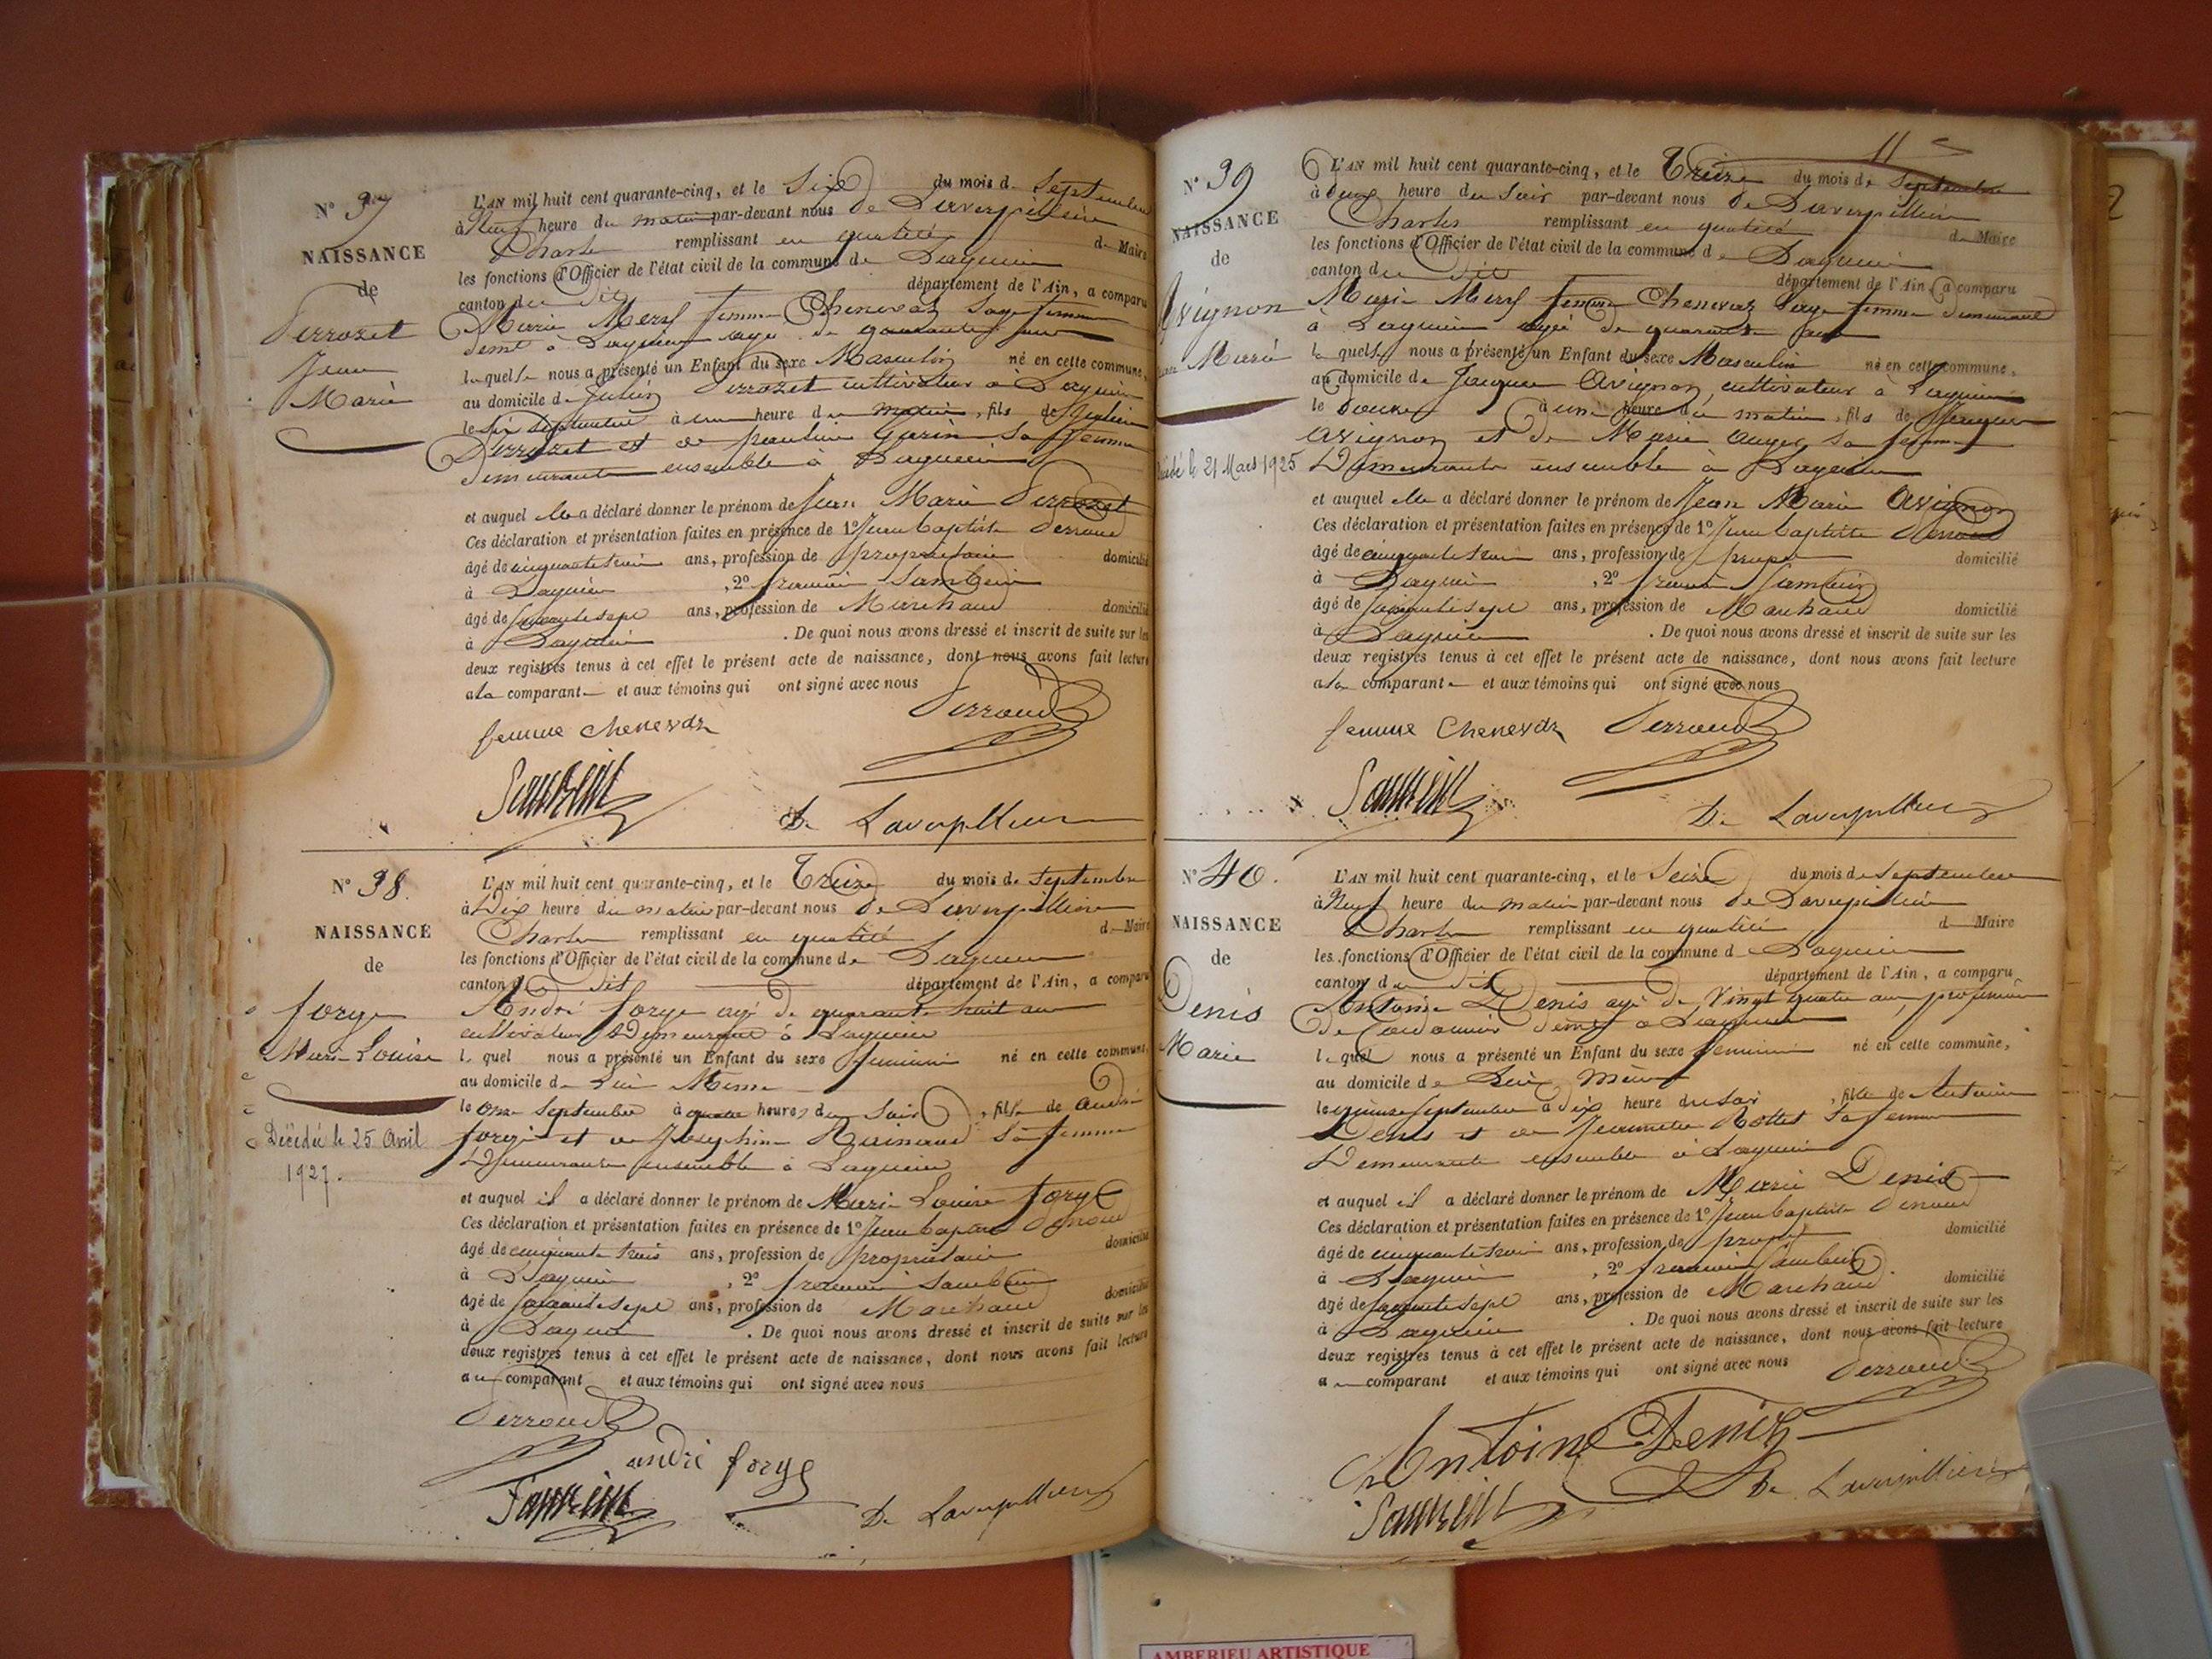 N° 37
NAISSANCE
de
Perrozet
Jean
Marie
L'AN mil huit cent quarante-cinq, et le Six du mois de Septembre
à Neuf heure du matin par-devant nous de Laverpillière
Charles remplissant en qualité de Maire
les fonctions d'Officier de l'état civil de la commune de Lagnieu
canton du dit département de l'Ain, a comparu
Marie Merle femme Chenevaz Sage femme
demt à Lagnieu agé de quarante ans
laquelle nous a présenté un Enfant du sexe Masculin né en cette commune,
au domicile de Julien Perrozet cultivateur à Lagnieu
le Six Septembre à une heure du matin, fils de Julien
Perrozet et de Gorin sa femme
demeurants ensemble à Lagnieu
et auquel elle a déclaré donner le prénom de Jean Marie Perrozet
Ces déclaration et présentation faites en présence de 1° Jean Baptiste Derroud
âgé de cinquante trois ans, profession de propriétaire domicilié
à Lagnieu, 2° françois Sambein
âgé de soixante sept ans, profession de Marchand domicilié
à Lagnieu. De quoi nous avons dressé et inscrit de suite sur les
deux registres tenus à cet effet le présent acte de naissance, dont nous avons fait lecture
a la comparante et aux témoins qui ont signé avec nous
Derroud
femme Chenevaz
Sambein
De Laverpilliere
N° 38.
NAISSANCE
de
forge
Marie Louise
Décédée le 25 Avril
1927.
L'AN mil huit cent quarante-cinq, et le Treize du mois de Septembre
à Dix heure du matin par-devant nous de Laverpillière
Charles remplissant en qualité de Maire
les fonctions d'Officier de l'état civil de la commune de Lagnieu
canton du dit département de l'Ain, a comparu
André forge agé de quarante huit ans
cultivateur Demeurant à Lagnieu
lequel nous a présenté un Enfant du sexe féminin né en cette commune,
au domicile de Lui Meme
le onze Septembre à quatre heures du Soir, fille de André
forge et de Josephine Sa femme
Demeurants ensemble à Lagnieu
et auquel il a déclaré donner le prénom de Marie Louise forge
Ces déclaration et présentation faites en présence de 1° Jean Baptiste Derroud
âgé de cinquante trois ans, profession de propriétaire domicilié
à Lagnieu, 2° françois Sambein
âgé de soixante sept ans, profession de Marchand domicilié
à Lagnieu. De quoi nous avons dressé et inscrit de suite sur les
deux registres tenus à cet effet le présent acte de naissance, dont nous avons fait lecture
au comparant et aux témoins qui ont signé avec nous
Derroud
andré forge
Sambein
De Laverpilliere
11
N° 39
NAISSANCE
de
Avignon
Marie
Décédé le 21 Mars 1925
L'AN mil huit cent quarante-cinq, et le Treize du mois de Septembre
à deux heure du Soir par-devant nous de Laverpillière
Charles remplissant en qualité de Maire
les fonctions d'Officier de l'état civil de la commune de Lagnieu
canton du dit département de l'Ain, a comparu
Marie Merle femme Chenevaz Sage femme demeurant
à Lagnieu agée de quarante ans
laquelle nous a présenté un Enfant du sexe Masculin né en cette commune,
au domicile de Jacques Avignon, cultivateur à Lagnieu
le douze à une heure du matin, fils de Jacques
Avignon et de Marie Auger sa femme
Demeurants ensemble à Lagnieu
et auquel elle a déclaré donner le prénom de Jean Marie Avignon
Ces déclaration et présentation faites en présence de 1° Jean Baptiste Derroud
âgé de cinquante trois ans, profession de propre domicilié
à Lagnieu, 2° françois Sambein
âgé de soixante sept ans, profession de Marchand domicilié
à Lagnieu. De quoi nous avons dressé et inscrit de suite sur les
deux registres tenus à cet effet le présent acte de naissance, dont nous avons fait lecture
a la comparante et aux témoins qui ont signé avec nous
femme Chenevaz Derroud
Sambein
De Laverpilliere
N° 40.
NAISSANCE
de
Denis
Marie
L'AN mil huit cent quarante-cinq, et le Seize du mois de Septembre
à Neuf heure du matin par-devant nous de Laverpillière
Charles remplissant en qualité de Maire
les fonctions d'Officier de l'état civil de la commune de Lagnieu
canton du dit département de l'Ain, a comparu
Antoine Denis agé de Vingt quatre ans, profession
de Cordonnier demt a Lagnieu
lequel nous a présenté un Enfant du sexe féminin né en cette commune,
au domicile de Lui même
le quinze Septembre à dix heure du soir, fille de Antoine
Denis et de Jeannette Rollet Sa femme
Demeurants ensemble à Lagnieu
et auquel il a déclaré donner le prénom de Marie Denis
Ces déclaration et présentation faites en présence de 1° Jean Baptiste Derroud
âgé de cinquante trois ans, profession de propre domicilié
à Lagnieu, 2° françois Sambein
âgé de soixante sept ans, profession de Marchand domicilié
à Lagnieu. De quoi nous avons dressé et inscrit de suite sur les
deux registres tenus à cet effet le présent acte de naissance, dont nous avons fait lecture
au comparant et aux témoins qui ont signé avec nous
Derroud
Antoine Denis
Sambein
De Laverpilliere
AMBERIEU ARTISTIQUE